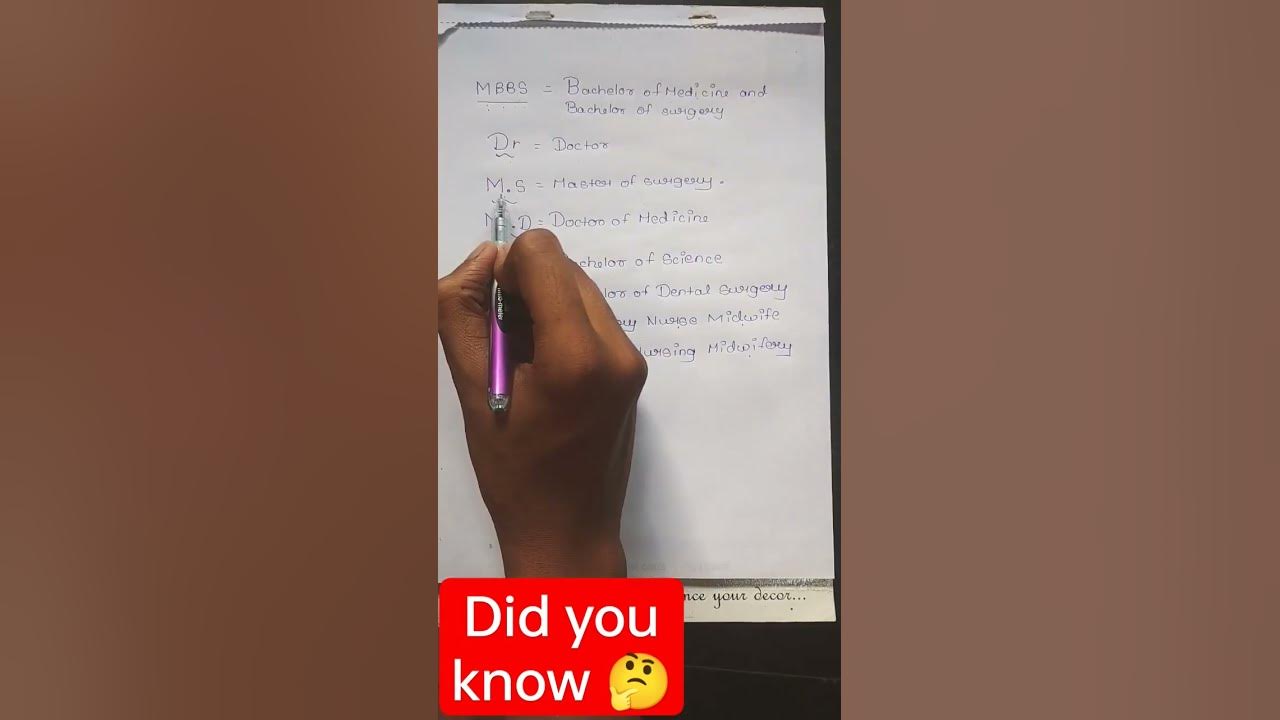 MBBS = Bachelor of Medicine and
Bachelor of surgery
Dr = Doctor
M.S = Master of surgery.
.D = Doctor of Medicine
of Science
of Dental surgery
Nurse Midwife
Midwifery
your decor...
Did you
know 🤔